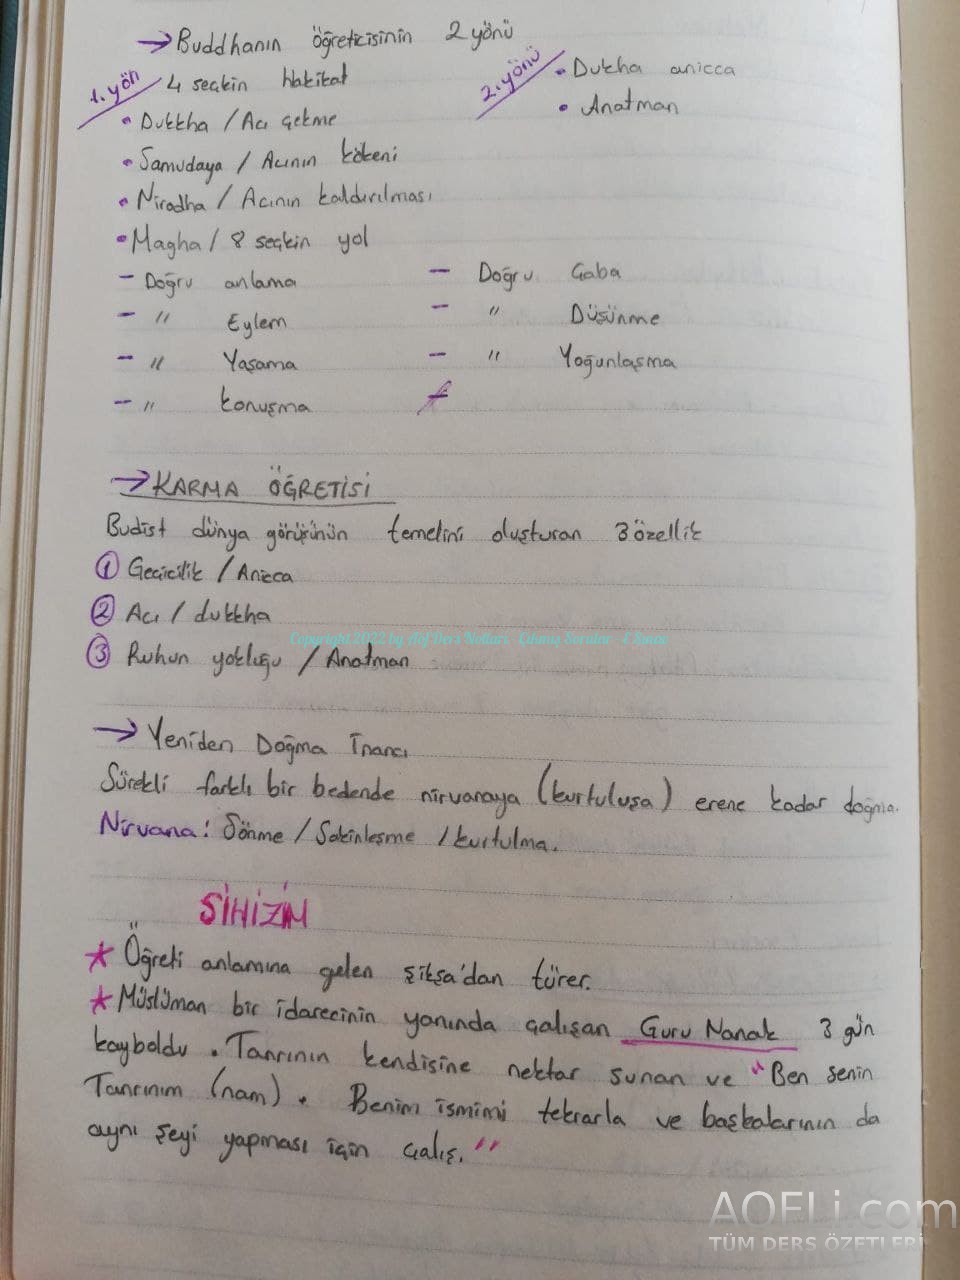 → Buddhanın öğreticisinin 2 yönü
1. yön 4 seçkin Hakikat
• Dukkha / Acı çekme
• Samudaya / Acının kökeni
• Nirodha / Acının kaldırılması
• Magha / 8 seçkin yol
- Doğru anlama
- " Eylem
- " Yaşama
- " konuşma
2. yönü • Dukha anicca
• Anatman
- Doğru Çaba
- " Düşünme
- " Yoğunlaşma
→ KARMA ÖĞRETİSİ
Budist dünya görüşünün temelini oluşturan 3 özellik
1 Geçicilik / Anicca
2 Acı / dukkha
3 Ruhun yokluğu / Anatman
Copyright 2022 by Aöf Ders Notları - Çıkmış Sorular -
→ Yeniden Doğma İnancı
Sürekli farklı bir bedende nirvanaya (kurtuluşa) erene kadar doğma.
Nirvana: Sönme / Sakinleşme / kurtulma.
SİHİZİM
* Öğreti anlamına gelen şikşa'dan türer.
* Müslüman bir idarecinin yanında çalışan Guru Nanak 3 gün
kayboldu. Tanrının kendisine nektar sunan ve "Ben senin
Tanrınım (nam). Benim ismimi tekrarla ve başkalarının da
aynı şeyi yapması için çalış."
AOFLi.com
TÜM DERS ÖZETLERİ